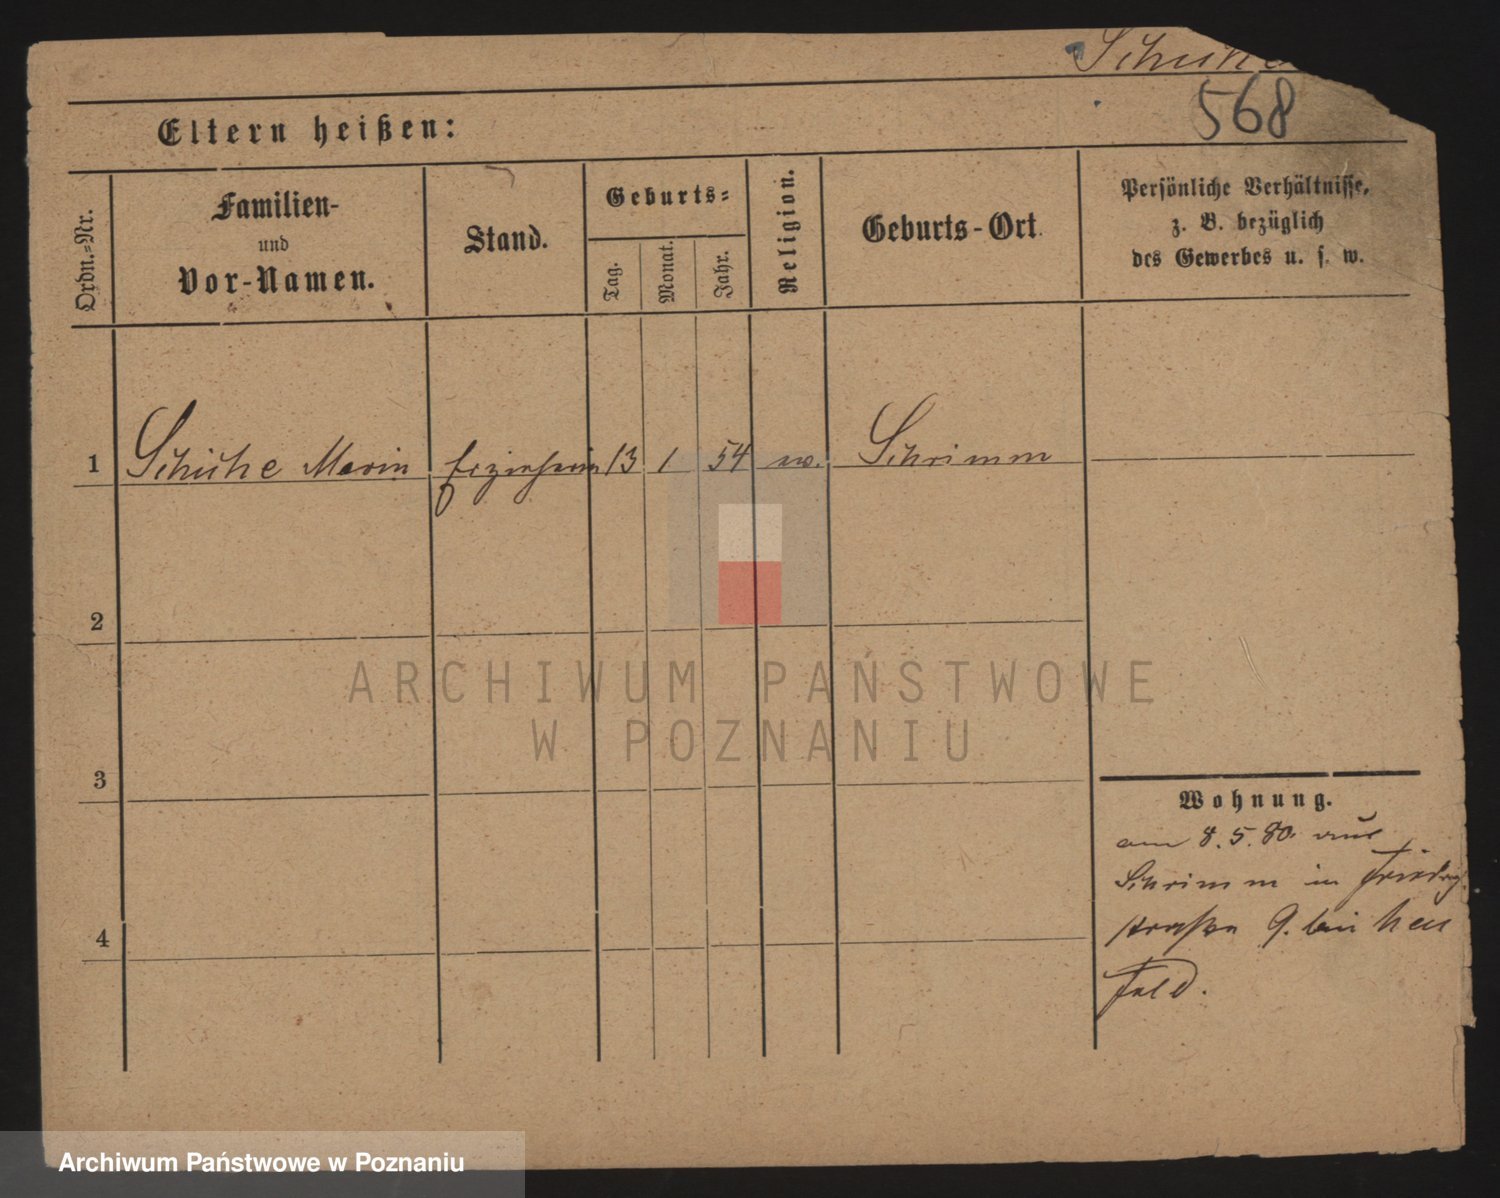 Schuhe
568
Eltern heißen:
Ordn.=Nr.
Familien-
und
Vor-Namen.
Stand.
Geburts=
Tag.
Monat.
Jahr.
Religion.
Geburts-Ort.
Persönliche Verhältnisse,
z. B. bezüglich
des Gewerbes u. s. w.
1 Schuhe Marie Erzieherin 13 1 54 ev. Schrimm
2
ARCHIWUM PAŃSTWOWE
W POZNANIU
3
Wohnung.
am 8. 5. 80. aus
Schrimm in Friedrich
straße 9. bei Neu
feld.
4
Archiwum Państwowe w Poznaniu